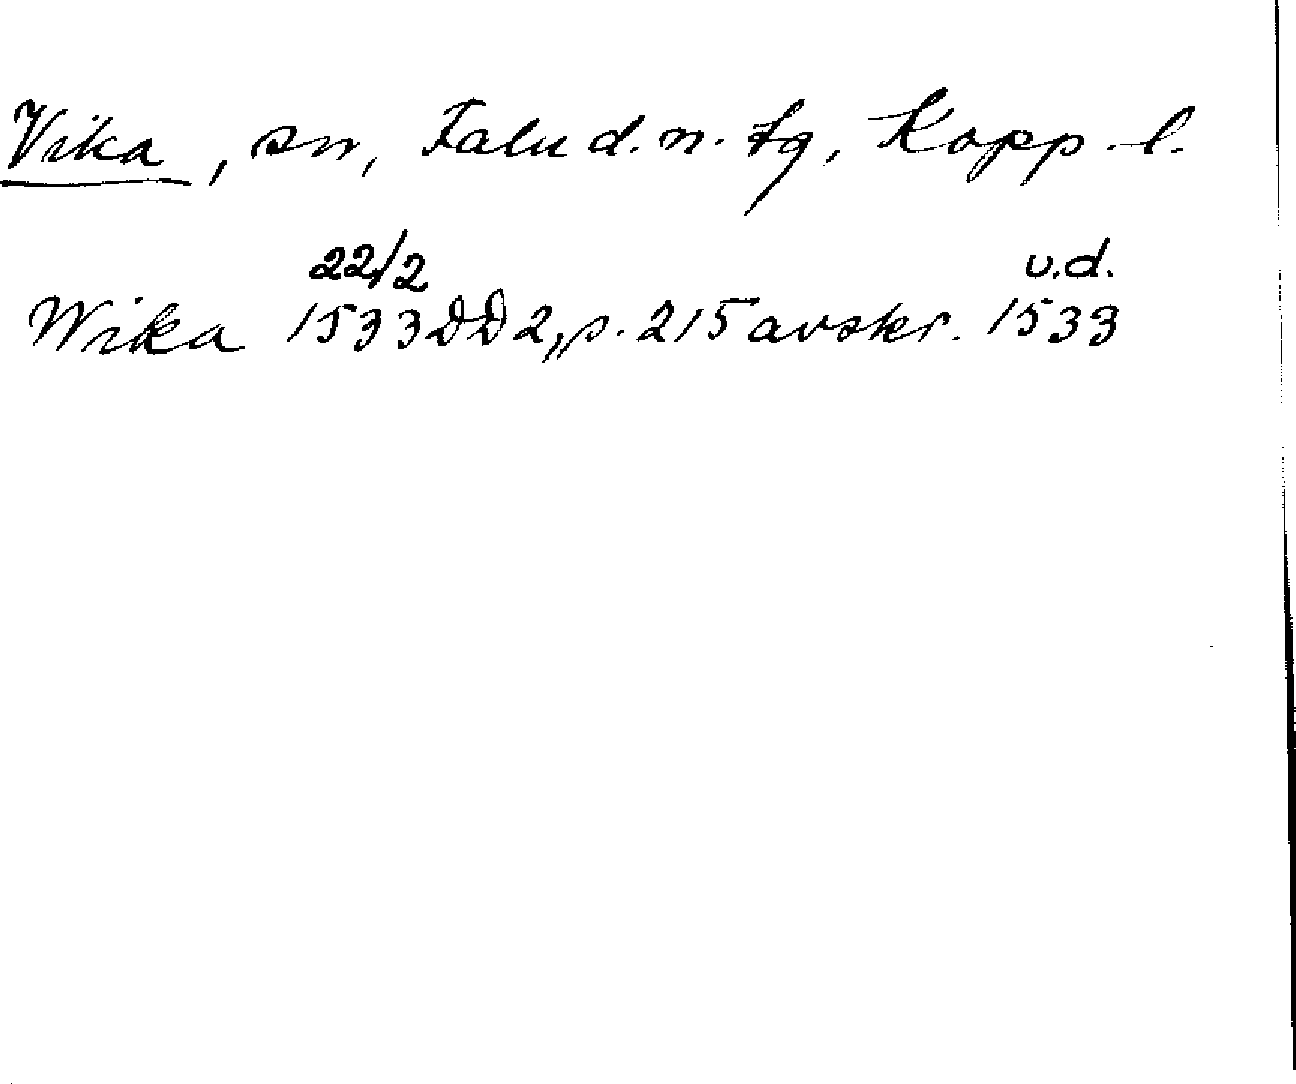 Vika, sn, Falu d. n. tg, Kopp. l.
22/2 u.d.
Wika 1533 DD 2, s. 215 avskr. 1533